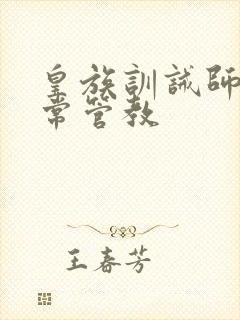 皇族訓誡師
常管教
王春芳